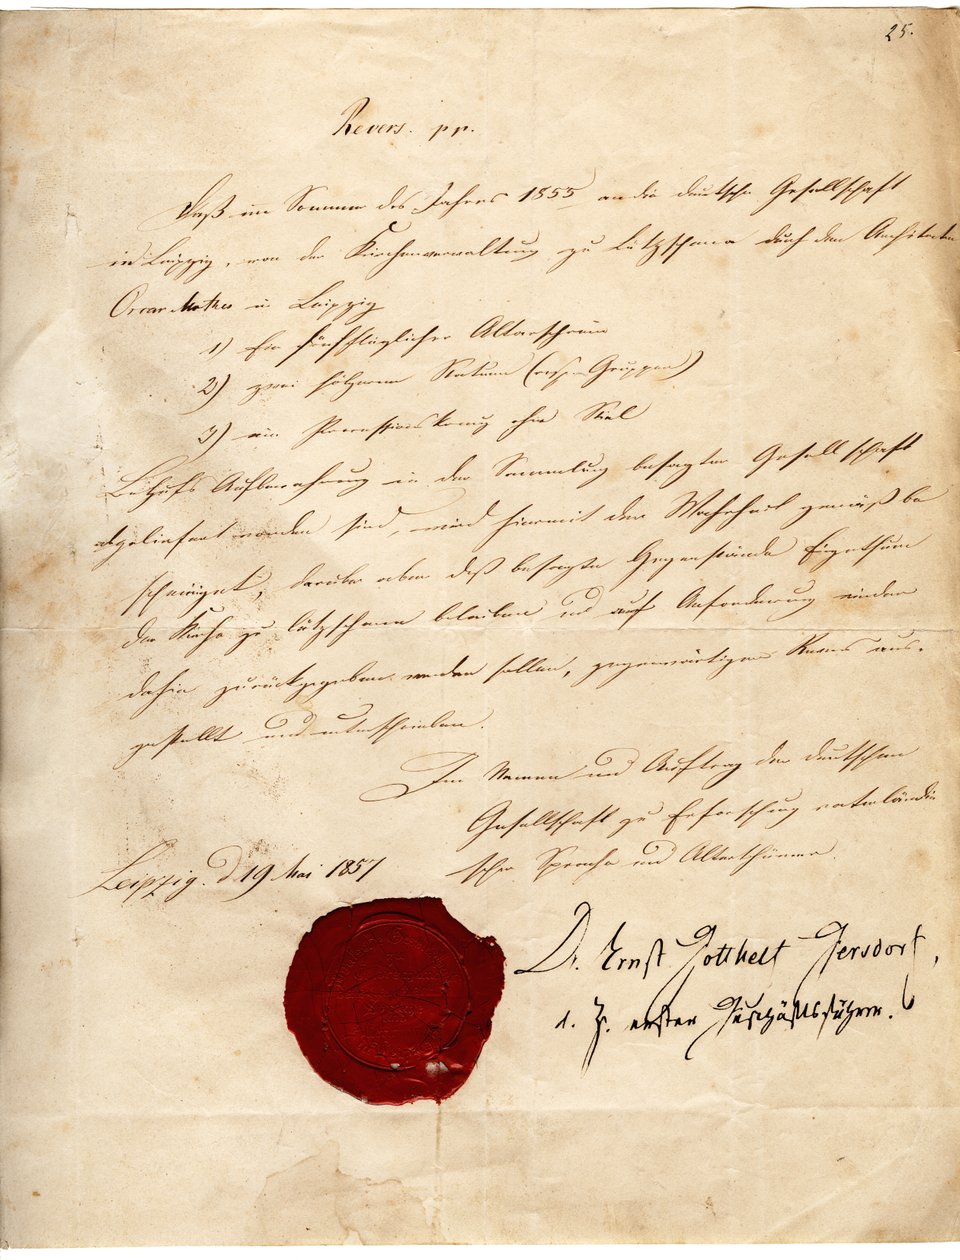 25.
Revers. pp.
Daß im Sommer des Jahres 1855 an die deutsche Gesellschaft
in Leipzig, von der Kirchenverwaltung zu Lützschena durch den Architecten
Oscar Mothes in Leipzig
1) Ein fünfflüglicher Altarschrein
2) zwei hölzerne Statuen (resp. Gruppen)
3) ein Processionskreuz ohne Stiel
Behufs Aufbewahrung in der Sammlung besagter Gesellschaft
abgeliefert worden sind, wird hiermit der Wahrheit gemäß be
scheinigt, darüber aber daß besagte Gegenstände Eigenthum
der Kirche zu Lützschena bleiben und auf Anforderung wieder
dahin zurückgegeben werden sollen, gegenwärtiger Revers aus-
gestellt und unterschrieben.
Im Namen und Auftrag der deutschen
Gesellschaft zu Erforschung vaterländi
scher Sprache und Alterthümer.
Leipzig. d. 19 Mai 1857
Dr. Ernst Gotthelf Gersdorf,
z. Z. erster Geschäftsführer.